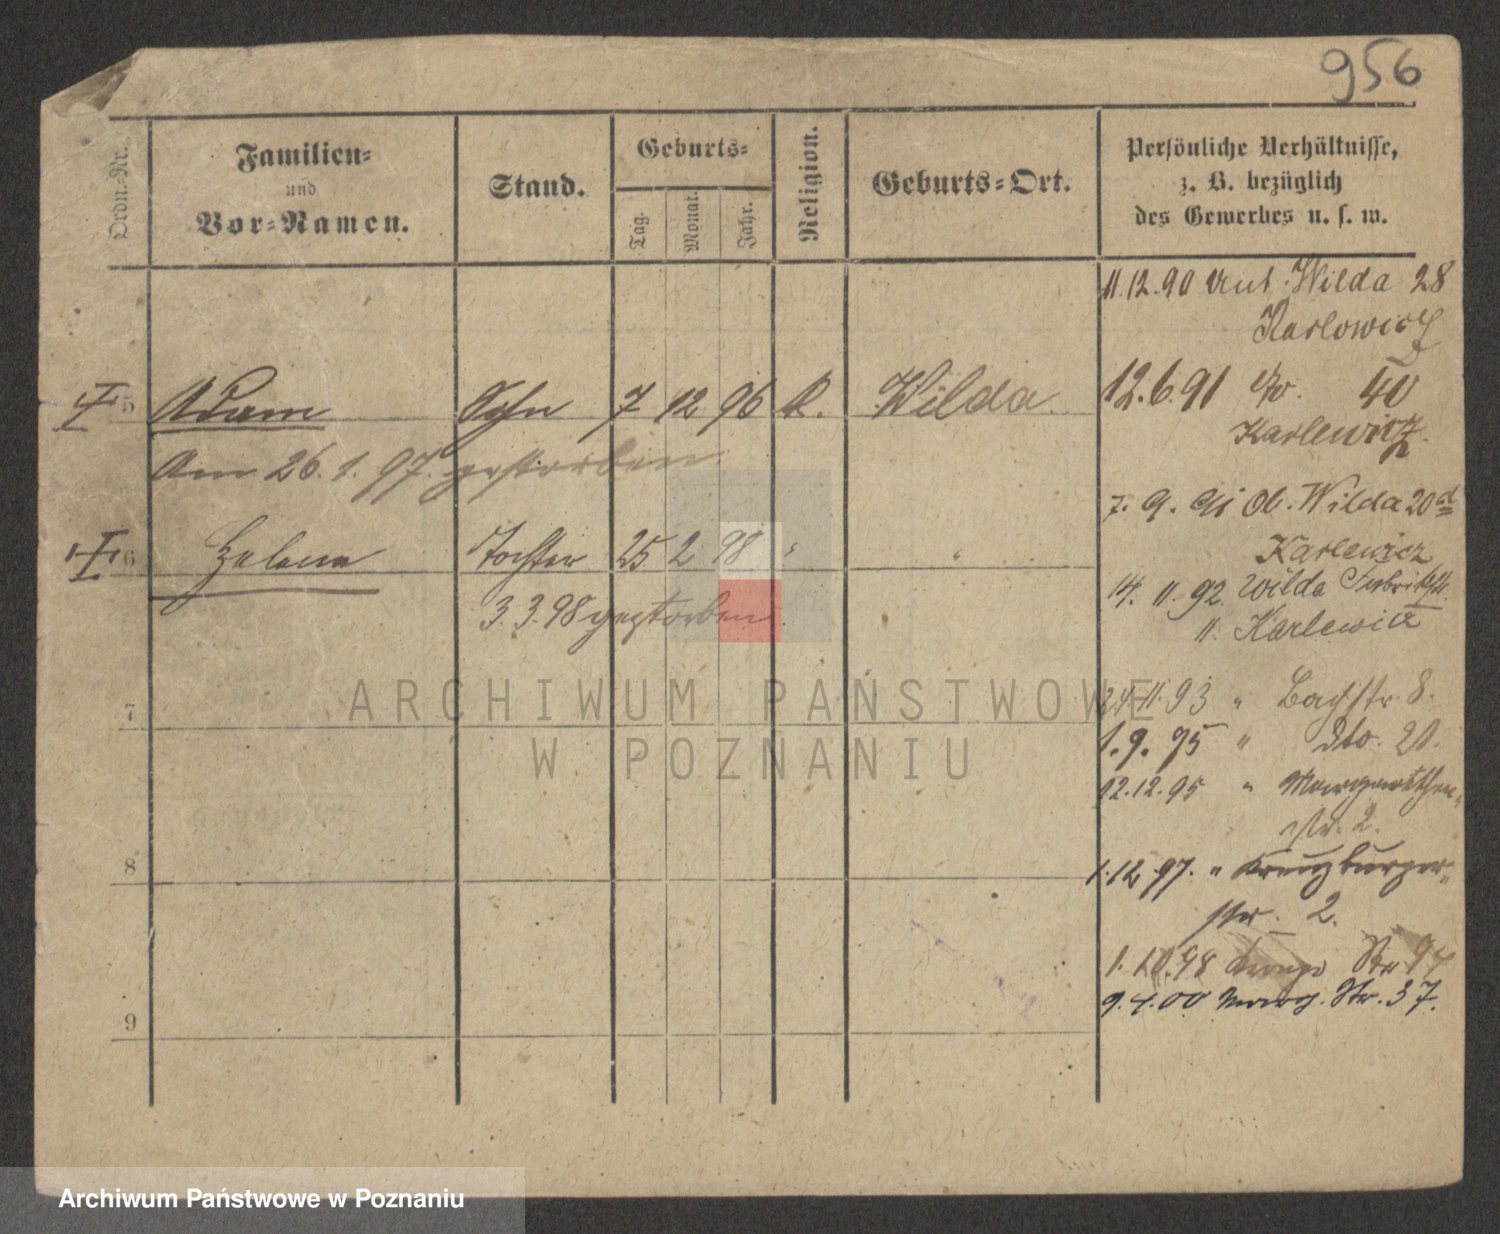 956
Ordn.-Nr.
Familien-
und
Vor-Namen.
Stand.
Geburts-
Tag.
Monat.
Jahr.
Religion.
Geburts-Ort.
Persönliche Verhältnisse,
z. B. bezüglich
des Gewerbes u. s. w.
11.12.90 Unt. Wilda 28
Karlowicz
5 Adam Sohn 7 12 96 K. Wilda
12.6.91 do. 40
Karlewicz.
Am 26.1.97. gestorben.
7. 9. 91 Ob. Wilda 20 a
Karlewicz
6 Helena Tochter 25 2 98 " "
3.3.98 gestorben.
14. 11. 92. Wilda
11. Karlewicz
24.11.93 " Bachstr 8.
7
1.9.95 " dto. 20.
12.12.95 " Margarethen-
str. 2.
8
1.12.97. " Kreuzburger-
str. 2.
1.10.98 Str 94
9.4.00 Marg. Str. 37.
9
ARCHIWUM PAŃSTWOWE
W POZNANIU
Archiwum Państwowe w Poznaniu